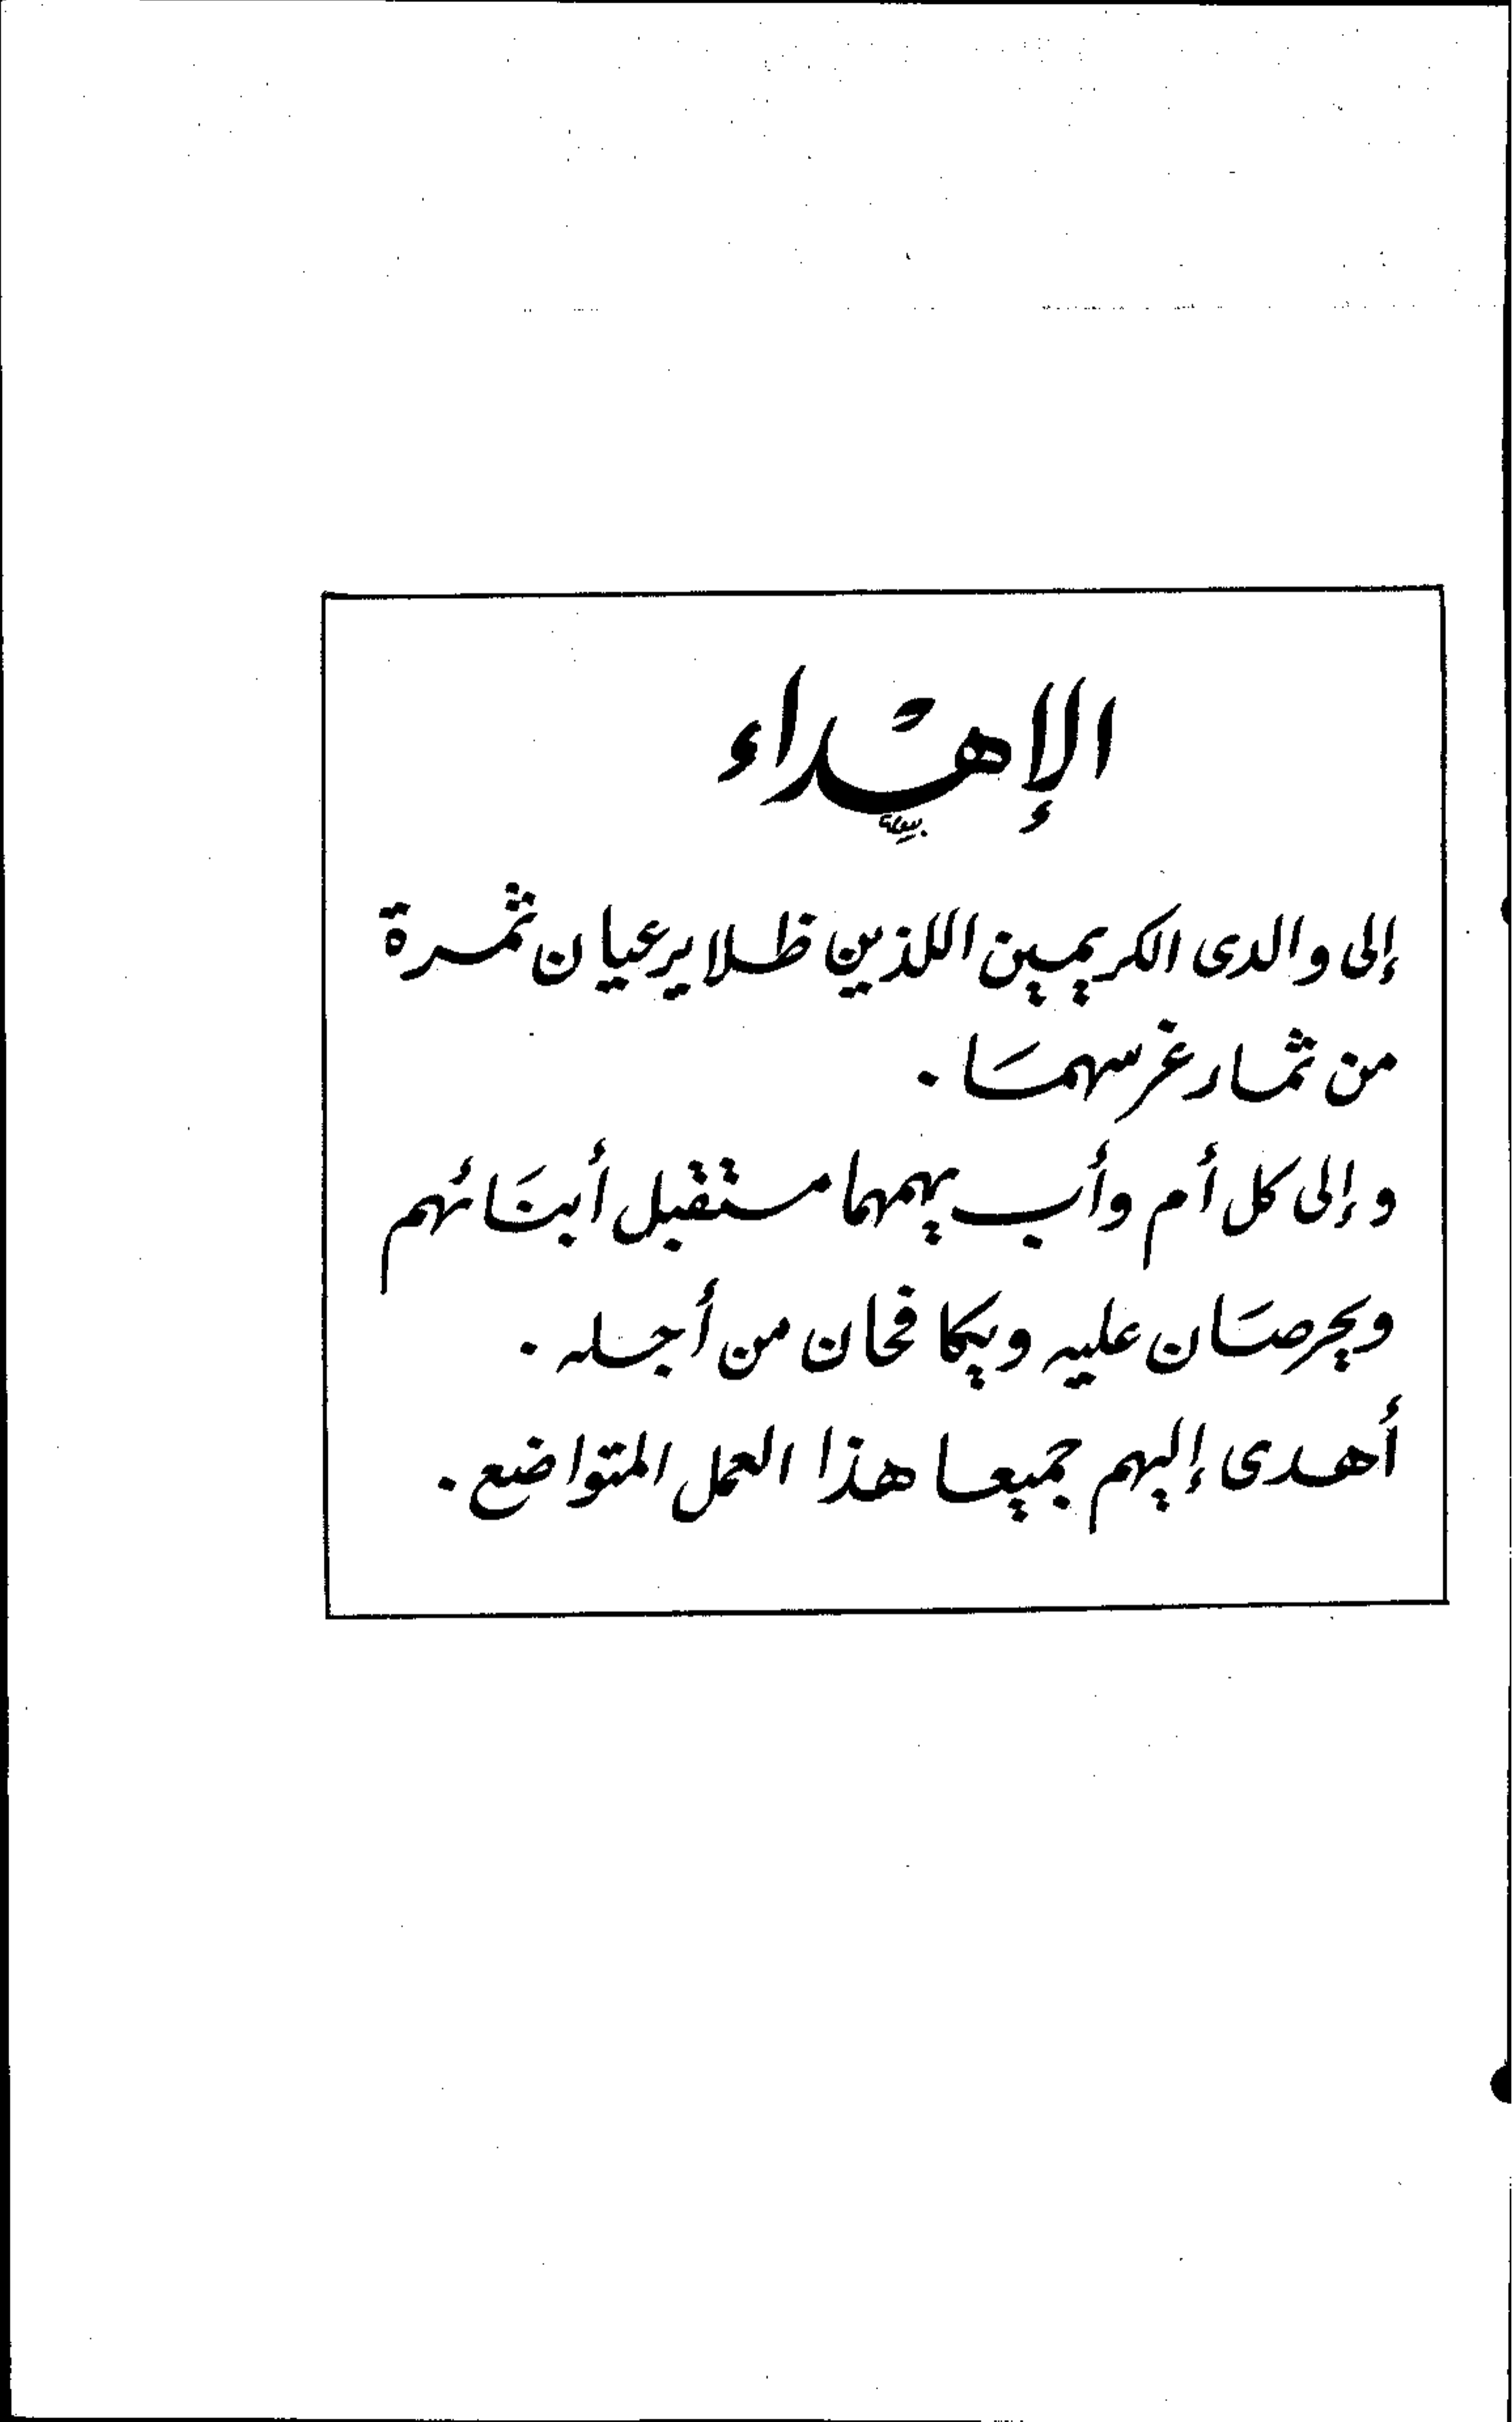 الإهداء
إلى والدى الكريمين اللذين ظلا يرعيان ثمرة
من ثمار غرسهما .
وإلى كل أم وأب يهمهما مستقبل أبنائهم
ويحرصان عليه ويكافحان من أجله .
أهدى إليهم جميعا هذا العمل المتواضع .